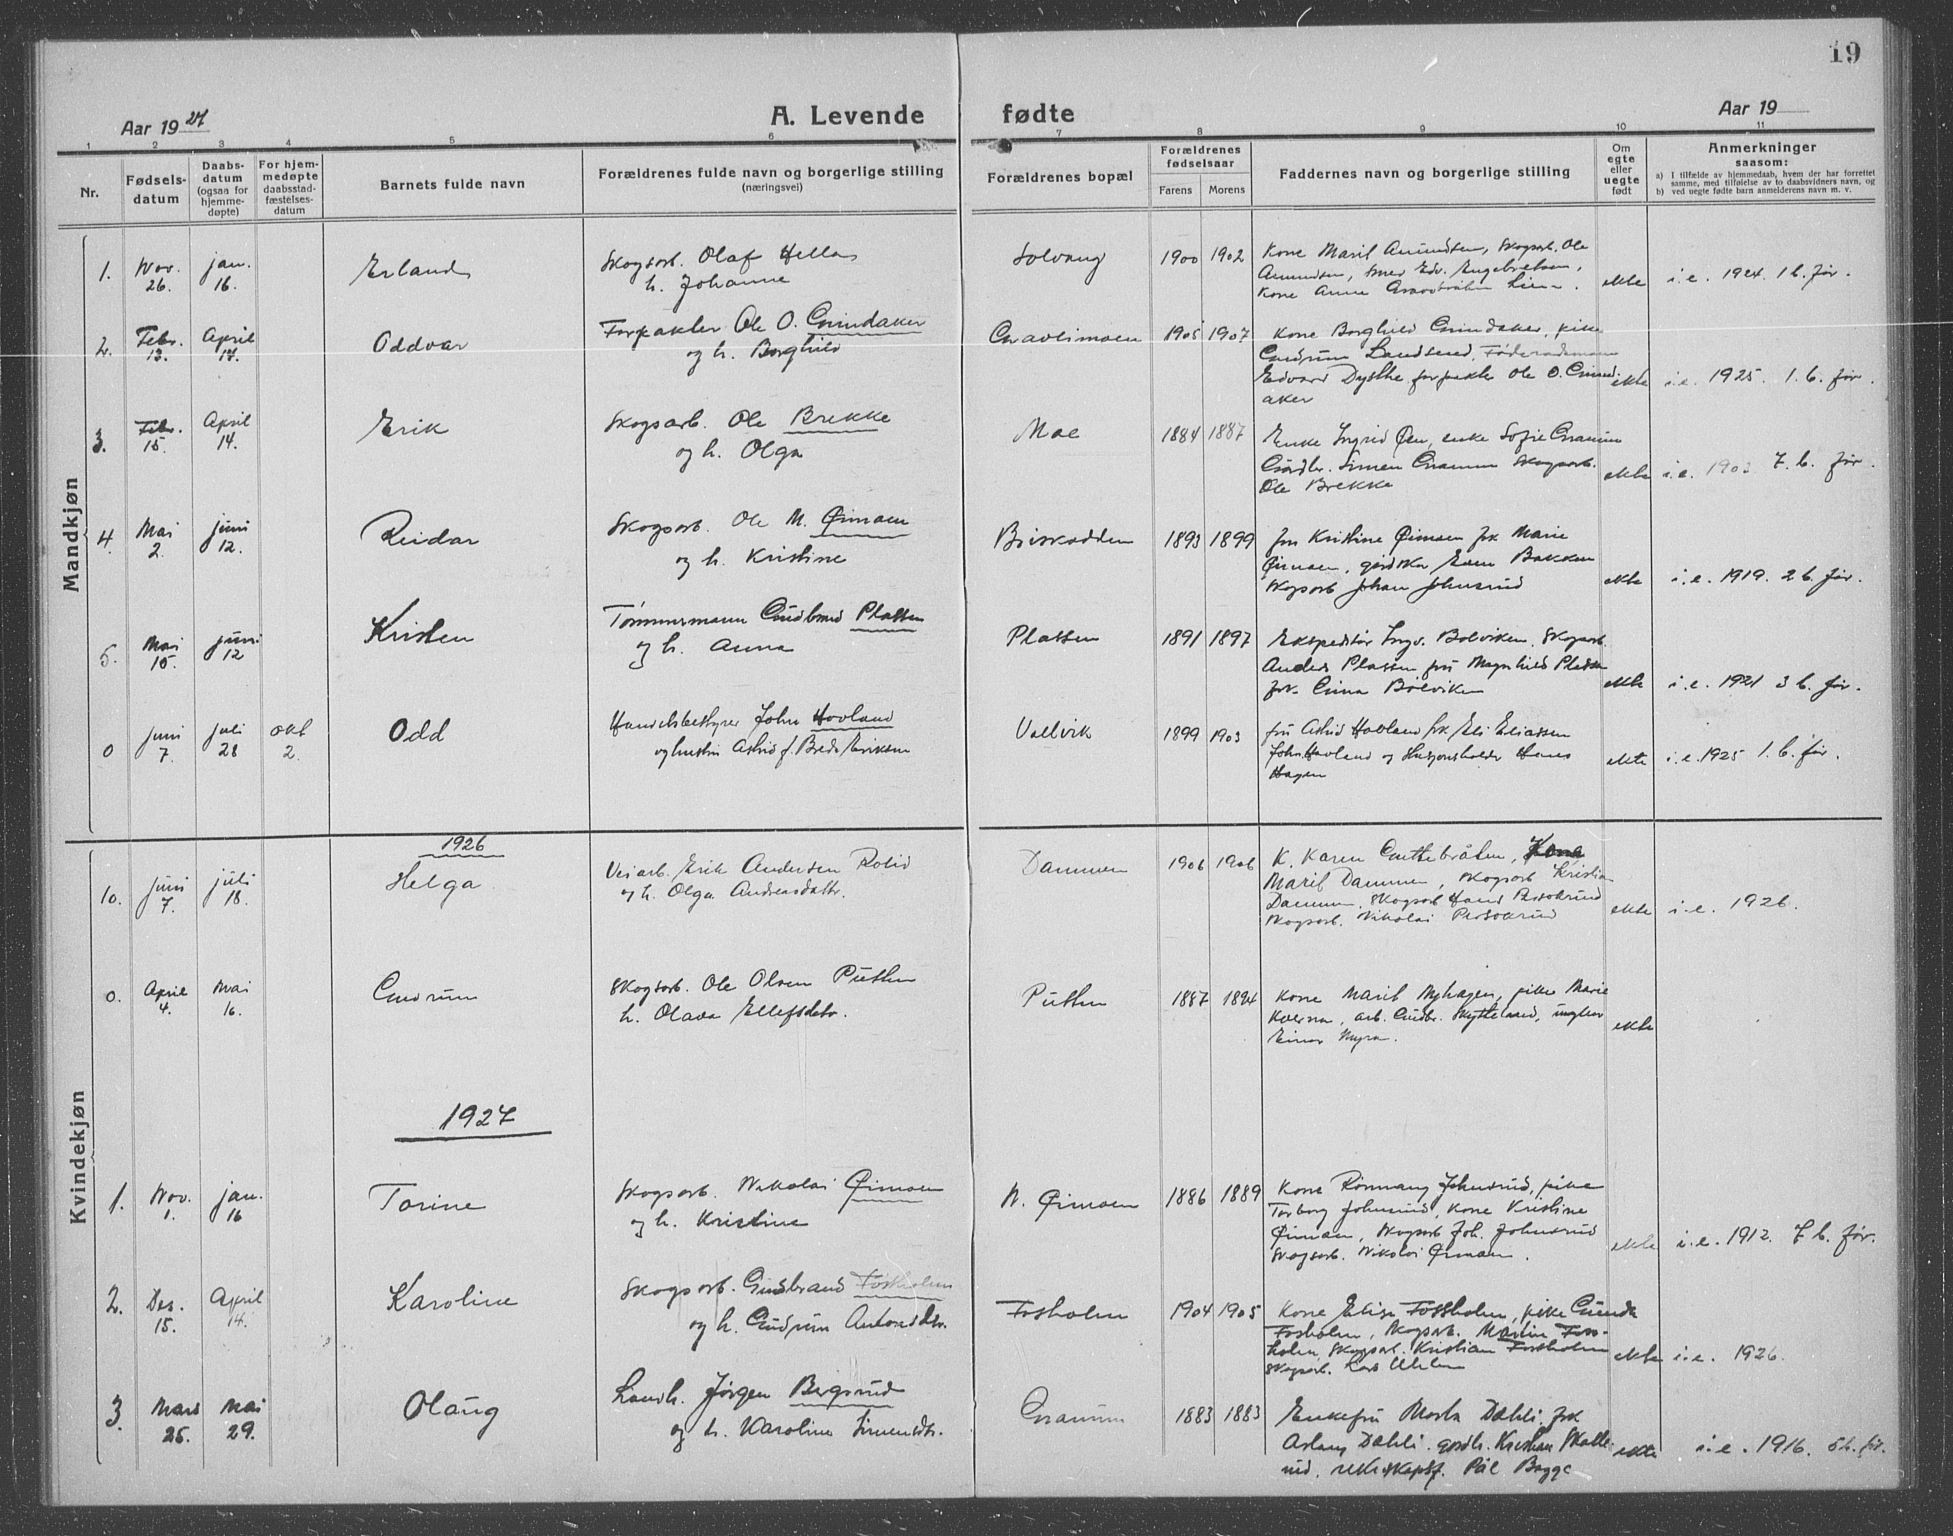 19
Aar 1927
A. Levende fødte
Aar 19
1 2 3 4 5 6 7 8 9 10 11
Nr.
Fødsels-
datum
Daabs-
datum
(ogsaa for
hjemme-
døpte)
For hjem-
medøpte
daabsstad-
fæstelses-
datum
Barnets fulde navn
Forældrenes fulde navn og borgerlige stilling
(næringsvei)
Forældrenes bopæl
Forældrenes
fødselsaar
Farens Morens
Faddernes navn og borgerlige stilling
Om
egte
eller
uegte
født
Anmerkninger
saasom:
a) I tilfælde av hjemmedaab, hvem der har forrettet
samme, med tilføielse av to daabsvidners navn, og
b) ved uegte fødte barn anmelderens navn m. v.
Mandkjøn
1. Nov. 26. jan. 16. Erland
Skogsarb. Olaf
h. Johanne
Solvang 1900 1902
Kone Marit Amundsen, Skogsarb. Ole
Amundsen, smed Edv. Engebretsen,
Kone Anne
ekte i.e. 1924. 1 b. før.
2. Febr. 13. April 17. Oddvar
Forpakter Ole O. Grindaker
og h. Borghild
Gravlimoen 1905 1907
Kone Borghild Grindaker, pike
Gudrun Landsend, Føderadsmann
Edvard Dysthe forpakter Ole O. Grind-
aker
ekte i.e. 1925. 1. b. før.
3. Febr. 15. April 14. Erik
Skogsarb. Ole Brekke
og h. Olga
Moe 1884 1887
Enke Ingrid Øen, enke Sofie Granum
Gårdbr. Simen Granum Skogsarb.
Ole Brekke
ekte i.e. 1903 7. b. før.
4. Mai 2. juni 12. Reidar
Skogsarb. Ole M. Ørmoen
og h. Kristine
Briskodden 1893 1899
fru Kristine Ørmoen frk Marie
Ørmoen, Even Bakken
skogsarb Johan Johnsrud
ekte i.e. 1919. 2 b. før.
5. Mai 15. juni 12 Kristen
Tømmermann Gudbrand Platten
og h. Anna
Platten 1891 1897
Ekspeditør Ingv. Bølviken, Skogsarb
Anders Platten fru Magnhild Platten
frk. Bølviken
ekte i.e. 1921 3 b. før.
0 juni 7. juli 28 okt 2. Odd
Handelsbestyrer John Hovland
og hustru Astrid f. Eriksen
Vælvik 1899 1903
fru Astrid Hovland frk Eli Eliassen
John Hovland og Hans
Hagen
ekte i.e. 1925 1. b. før.
Kvindekjøn
1926
10. juni 7. juli 18. Helga
Veiarb. Erik Andersen Rolid
og h. Olga Andreasdattr.
Dammen 1906 1906
K. Karen Guttebråten, Kone
Marit Dammen, skogsarb Kristian
Dammen, Skogsarb Hans Persokrud
skogsarb. Nikolai Persokrud
ekte i.e. 1926.
0. April 4. Mai 16. Gudrun
Skogsarb. Ole Olsen Putten
h. Olava Ellefsdtr.
Putten 1887 1894
Kone Marit Myhagen, pike Marie
Kværna, arb. Gudbr. ungkar
Einar Myra.
ekte
1927
1. Nov. 1. jan. 16 Torine
Skogsarb. Nikolai Ørmoen
og h. Kristine
N. Ørmoen 1886 1889
Kone Rønnaug Johnsrud, pike
Torborg Johnsrud, Kone Kristine
Ørmoen, skogsarb Joh. Johnsrud
Skogsarb. Nikolai Ørmoen.
ekte i.e. 1912. 7 b. før.
2. Des. 15. April 14. Karoline
Skogsarb. Gudbrand Fosholm
og h. Gudrun Antonsdtr.
Fosholm 1904 1905
Kone Elise Fossholm, pike Gunda
Fosholm, Skogsarb. Martin Foss-
holm, Skogsarb. Kristian Fossholm
Skogsarb. Lars Uhlen
ekte i.e. 1926.
3. Mars 25. Mai 29. Olaug
Landh. Jørgen Bergsrud
og h. Karoline Simensdtr.
Granum 1883 1883
Enkefru Marta Dæhli, frk
Aslaug Dæhli. gårdbr. Kristian
rud. Pål Bagge
ekte i.e. 1916. 5 b. før.